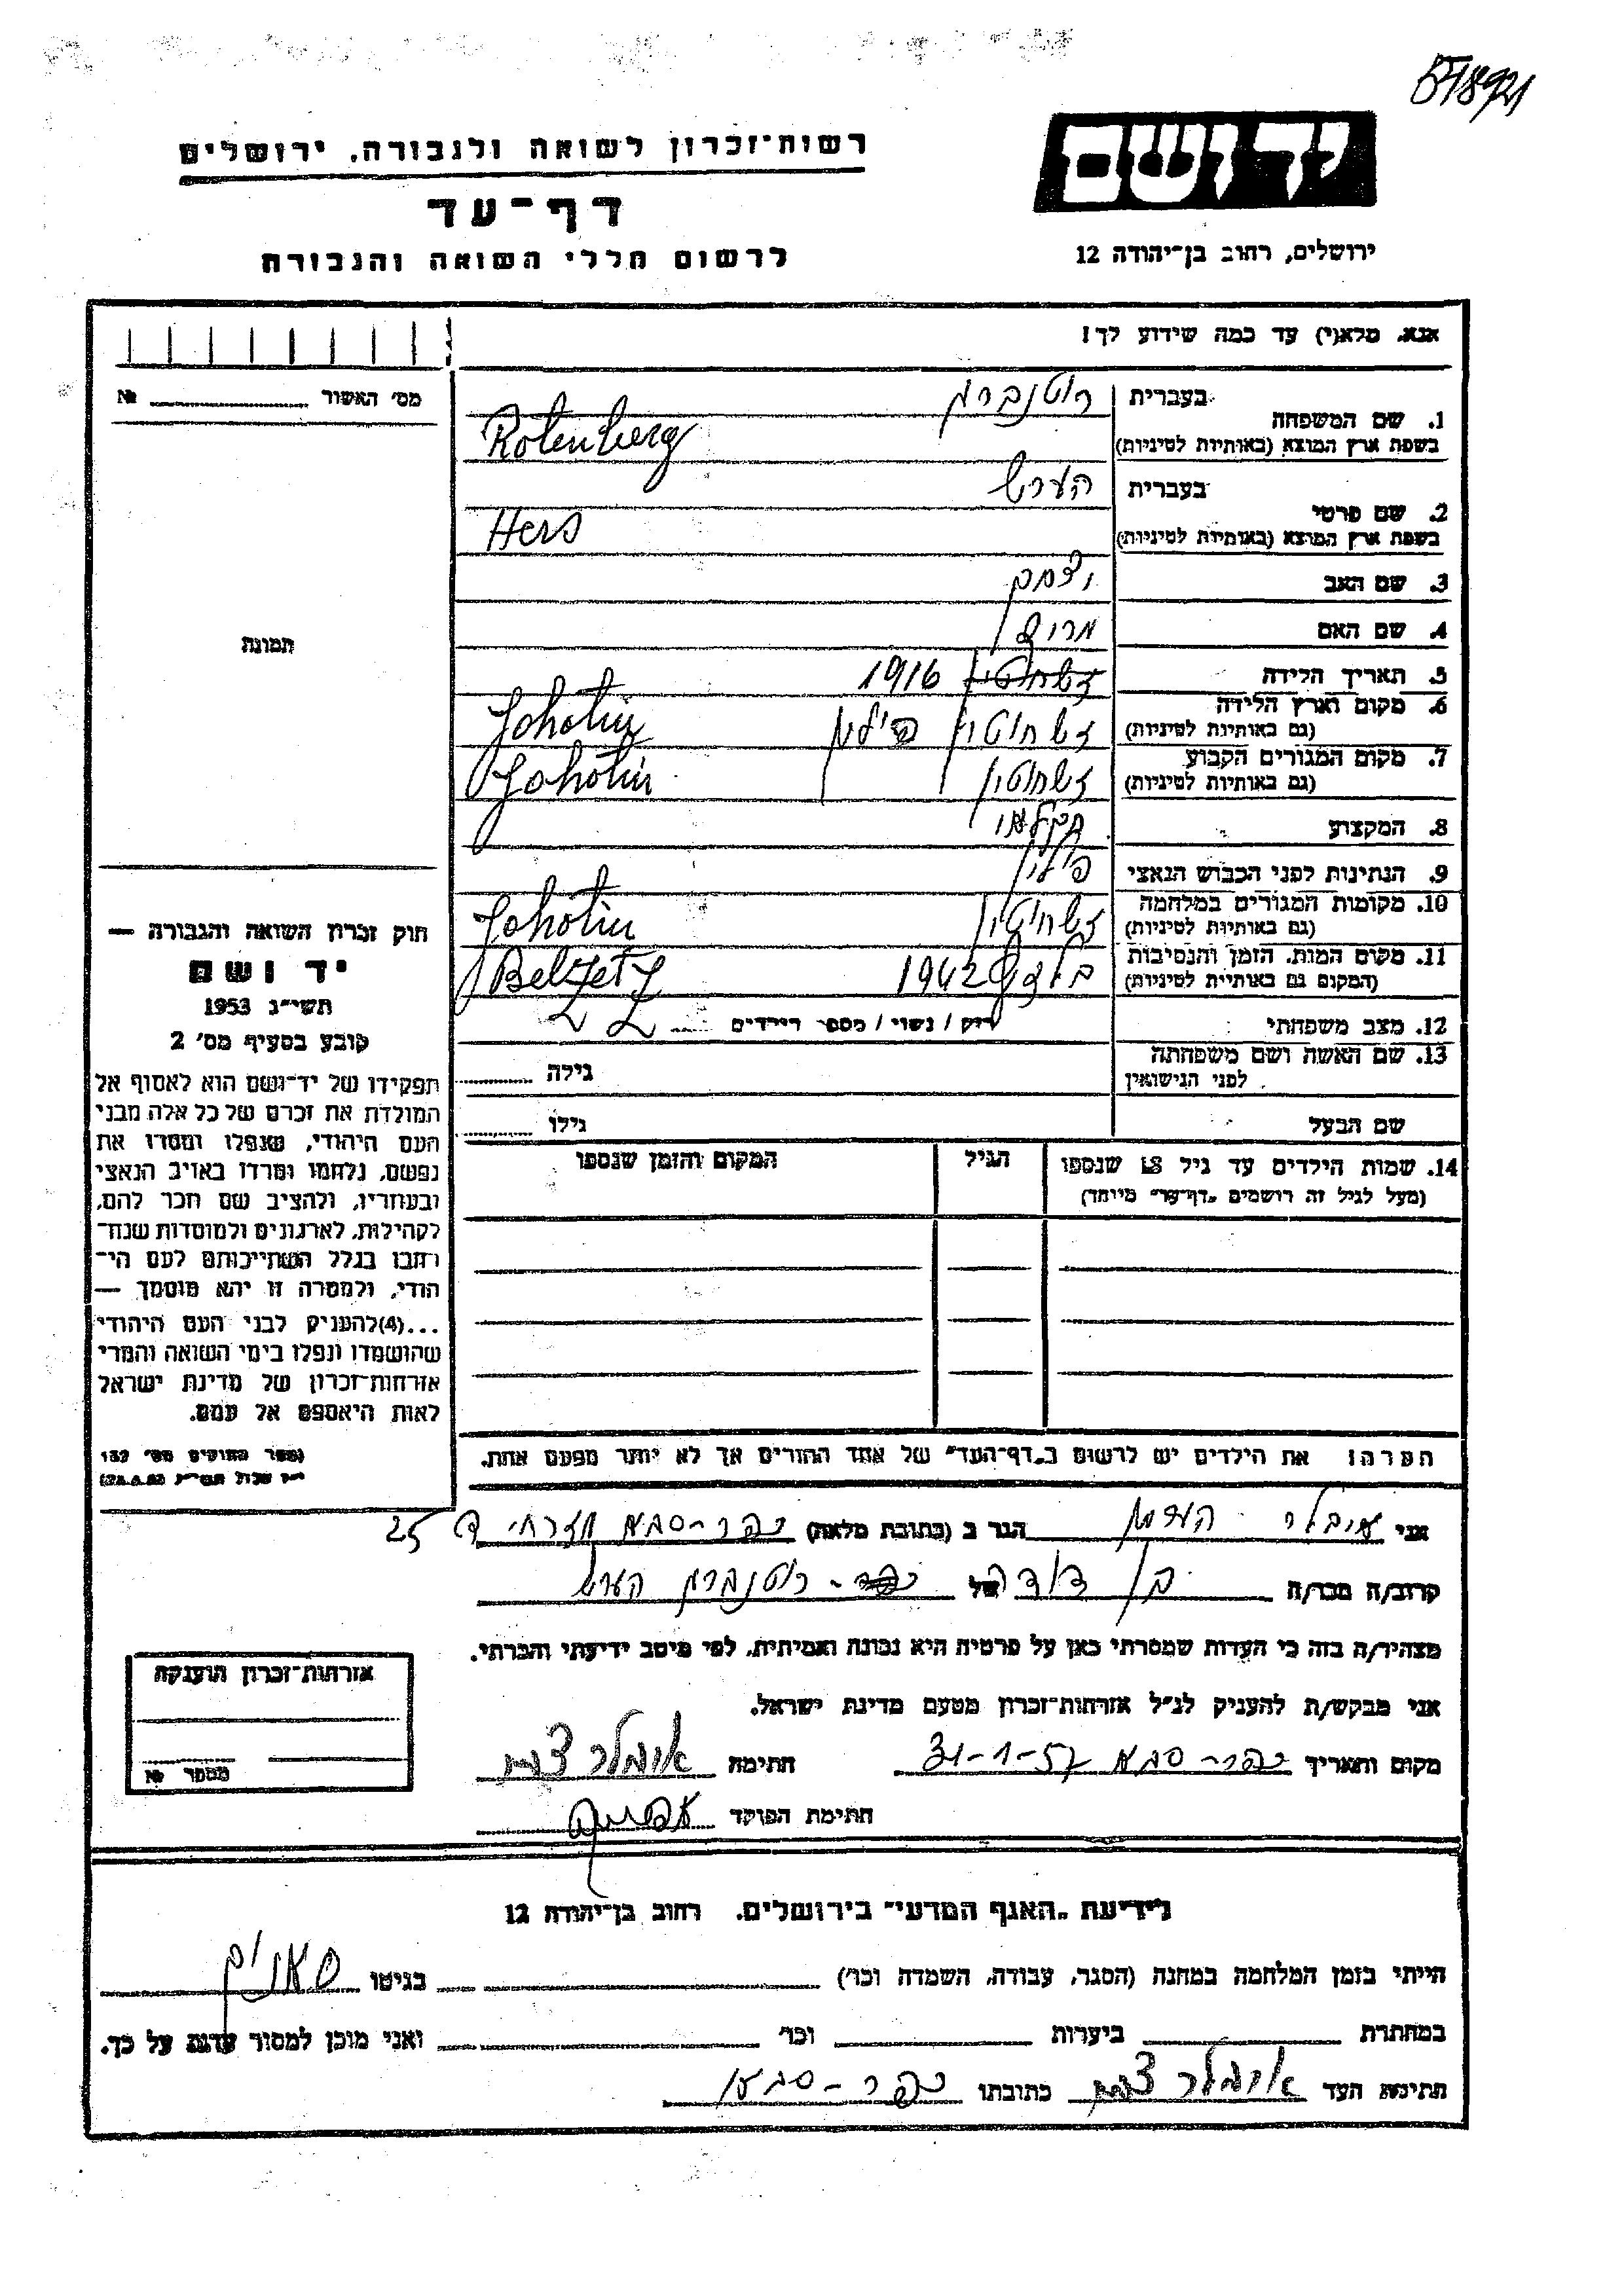 רשות־זכרון לשואה ולגבורה, ירושלים
דף־עד
לרשום חללי השואה והגבורה
יד ושם
ירושלים, רחוב בן־יהודה 12
אנא, מלא(י) עד כמה שידוע לך!
מס' האשור № 
תמונה
1. שם המשפחה בעברית רוטנברג
בשפת ארץ המוצא (באותיות לטיניות) Rotenberg
2. שם פרטי בעברית הערש
בשפת ארץ המוצא (באותיות לטיניות) Hers
3. שם האב יצחק
4. שם האם מרים
5. תאריך הלידה 1916
6. מקום וארץ הלידה
(גם באותיות לטיניות)
7. מקום המגורים הקבוע
(גם באותיות לטיניות)
8. המקצוע חקלאי
9. הנתינות לפני הכבוש הנאצי פולין
10. מקומות המגורים במלחמה
(גם באותיות לטיניות)
11. מקום המות, הזמן והנסיבות 1942
(המקום גם באותיות לטיניות) Belzetz
12. מצב משפחתי רוק / נשוי / מספר הילדים
13. שם האשה ושם משפחתה
לפני הנישואין גילה
שם הבעל גילו
14. שמות הילדים עד גיל 18 שנספו הגיל המקום והזמן שנספו
(מעל לגיל זה רושמים „דף־עד" מיוחד)
חוק זכרון השואה והגבורה —
יד ושם
תשי"ג 1953
קובע בסעיף מס' 2
תפקידו של יד־ושם הוא לאסוף אל
המולדת את זכרם של כל אלה מבני
העם היהודי, שנפלו ומסרו את
נפשם, נלחמו ומרדו באויב הנאצי
ובעוזריו, ולהציב שם וזכר להם,
לקהילות, לארגונים ולמוסדות שנח־
רבו בגלל השתייכותם לעם הי־
הודי, ולמטרה זו יהא מוסמך —
...(4) להעניק לבני העם היהודי
שהושמדו ונפלו בימי השואה והמרי
אזרחות־זכרון של מדינת ישראל
לאות היאספם אל עמם.
(ספר החוקים מס' 132
הערה: את הילדים יש לרשום ב„דף־העד" של אחד ההורים אך לא יותר מפעם אחת.
אני הגר ב (כתובת מלאה) כפר-סבא 25
קרוב/ה מכר/ה בן דודה של רוטנברג הערש
מצהיר/ה בזה כי העדות שמסרתי כאן על פרטיה היא נכונה ואמיתית, לפי מיטב ידיעתי והכרתי.
אני מבקש/ת להעניק לנ"ל אזרחות־זכרון מטעם מדינת ישראל.
מקום ותאריך כפר-סבא 31-1-57 חתימה
חתימת הפוקד
אזרחות־זכרון הוענקה
מספר №
לידיעת „האגף המדעי" בירושלים, רחוב בן־יהודה 12
הייתי בזמן המלחמה במחנה (הסגר, עבודה, השמדה וכו') בגיטו
במחתרת ביערות וכו' ואני מוכן למסור עדות על כך.
חתימת העד כתובתו כפר-סבא